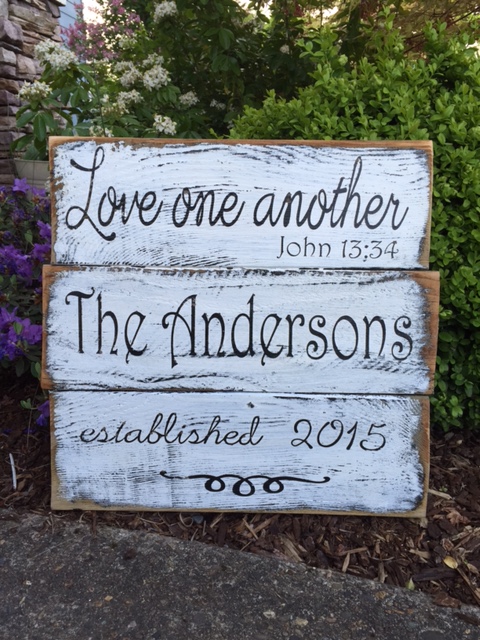 Love one another
John 13:34
The Andersons
established 2015